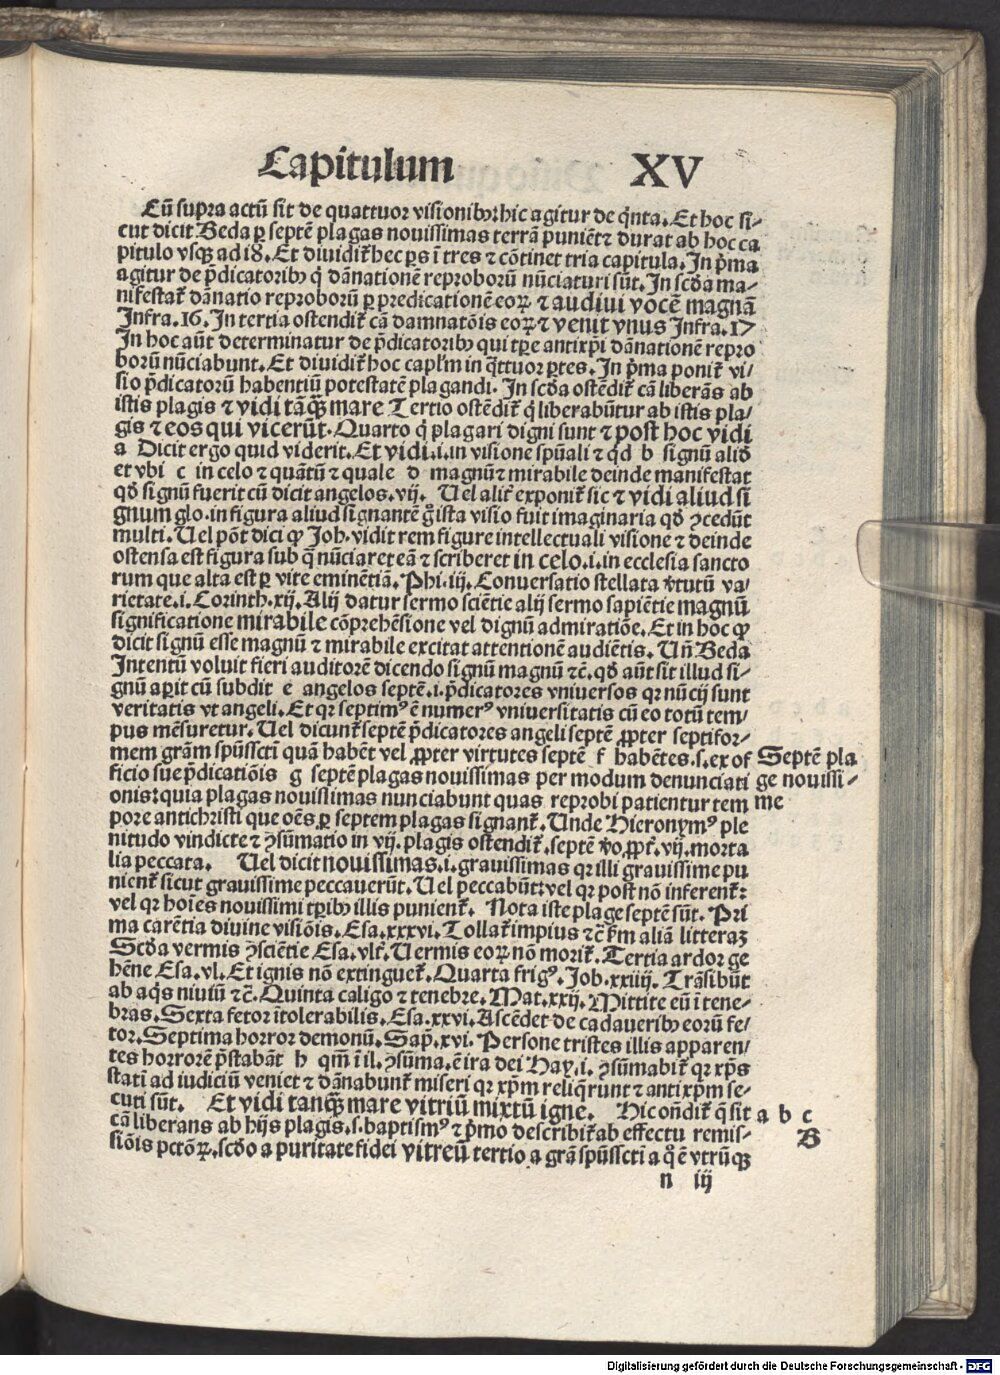 Capitulum XV
Cũ supra actũ sit de quattuor visionibꝰ: hic agitur de q̇nta. Et hoc si⸗
cut dicit Beda ꝑ septẽ plagas nouissimas terrã puniẽt ⁊ durat ab hoc ca
pitulo vsqꝫ ad 18. Et diuidit̃ hec ꝑs ĩ tres ⁊ cõtinet tria capitula. In p̃ma
agitur de p̃dicatoribꝰ q̇ dãnationẽ reproborũ nũciaturi sũt. In scd̃a ma⸗
nifestat̃ dãnatio reproborũ ꝑ predicationẽ eoꝝ ⁊ audiui vocẽ magnã
Infra. 16. In tertia ostendit̃ cã damnatõis eoꝝ ⁊ venit vnus Infra. 17
In hoc aũt determinatur de p̃dicatoribꝰ qui tꝑe antixp̃i dãnationẽ repro
borũ nũciabunt. Et diuidit̃ hoc capl'm in q̃ttuor ꝑtes. In p̃ma ponit̃ vi⸗
sio p̃dicatorũ habentiũ potestatẽ plagandi. In scd̃a ostẽdit̃ cã liberãs ab
istis plagis ⁊ vidi tãqꝫ mare Tertio ostẽdit̃ q̇ liberabũtur ab istis pla⸗
gis ⁊ eos qui vicerũt. Quarto q̇ plagari digni sunt ⁊ post hoc vidi
a Dicit ergo quid viderit. Et vidi .i. in visione spũali ⁊ qd̃ b signũ aliđ
et vbi c in celo ⁊ quãtũ ⁊ quale d magnũ ⁊ mirabile deinde manifestat
qđ signũ fuerit cũ dicit angelos .vij. Uel alit̃ exponit̃ sic ⁊ vidi aliud si
gnum glo. in figura aliud signantẽ q̃ ista visio fuit imaginaria qđ ꝯcedũt
multi. Uel põt dici ꝙ Joh. vidit rem figure intellectuali visione ⁊ deinde
ostensa est figura sub q̃ nũciaret eã ⁊ scriberet in celo .i. in ecclesia sancto
rum que alta est ꝑ vite eminẽtiã. Phi. iij. Conuersatio stellata v̾tutũ va⸗
rietate. i. Corinth. xij. Alij datur sermo sciẽtie alij sermo sapiẽtie magnũ
significatione mirabile cõprehẽsione vel dignũ admiratiõe. Et in hoc ꝙ
dicit signũ esse magnũ ⁊ mirabile excitat attentionẽ audiẽtis. Uñ Beda
Intentũ voluit fieri auditorẽ dicendo signũ magnũ ⁊c̃. qđ aũt sit illud si⸗
gnũ aꝑit cũ subdit e angelos septẽ .i. p̃dicatores vniuersos qꝛ nũcij sunt
veritatis vt angeli. Et qꝛ septimꝰ ẽ numerꝰ vniuersitatis cũ eo totũ tem⸗
pus mẽsuretur. Uel dicunt̃ septẽ p̃dicatores angeli septẽ ꝓpter septifor⸗
mem grãm spũsscti quã habẽt vel ꝓpter virtutes septẽ f habẽtes .s. ex of
ficio sue p̃dicatiõis g septẽ plagas nouissimas per modum denunciati
onis: quia plagas nouissimas nunciabunt quas reprobi patientur tem
pore antichristi que oẽs ꝑ septem plagas signant̃. Unde Hieronymꝰ ple
nitudo vindicte ⁊ ꝯsũmatio in vij. plagis ostendit̃. septẽ v̾o ꝓpt̃. vij. morta
lia peccata. Uel dicit nouissimas .i. grauissimas qꝛ illi grauissime pu
nient̃ sicut grauissime peccauerũt. Uel peccabũt: vel qꝛ post nõ inferent̃:
vel qꝛ hoĩes nouissimi tꝑibꝰ illis punient̃. Nota iste plage septẽ sũt. Pri
ma carẽtia diuine visiõis. Esa. xxxvi. Tollat̃ impius ⁊c̃ ẜm aliã litteraꝫ
Scd̃a vermis ꝯsciẽtie Esa. vlt̃. Uermis eoꝝ nõ morit̃. Tertia ardor ge
hẽne Esa. vl. Et ignis nõ extinguet̃. Quarta frigꝰ. Job. xxiiij. Trãsibũt
ab aq̃s niuiũ ⁊c̃. Quinta caligo ⁊ tenebre. Mat. xxij. Mittite eũ ĩ tene⸗
bras. Sexta fetor ĩtolerabilis. Esa. xxvi. Ascẽdet de cadaueribꝰ eorũ fe⸗
tor. Septima horror demonũ. Sap̃. xvi. Persone tristes illis apparen⸗
tes horrorẽ p̃stabãt h qm̃ ĩ il. ꝯsũma. ẽ ira dei Hay. i. ꝯsũmabit̃ qꝛ xp̃s
statĩ ad iudiciũ veniet ⁊ dãnabunt̃ miseri qꝛ xp̃m reliq̃runt ⁊ antixp̃m se⸗
cuti sũt. Et vidi tanqꝫ mare vitriũ mixtũ igne. Hic oñdit̃ q̃ sit
cã liberans ab hijs plagis .s. baptismꝰ ⁊ p̃mo describit̃ ab effectu remis⸗
siõis pctõꝝ. scd̃o a puritate fidei vitreũ tertio a grã spũsscti a q̃ ẽ vtrũqꝫ
n iij
Septẽ pla
ge nouissi⸗
me
a b c
B
Digitalisierung gefördert durch die Deutsche Forschungsgemeinschaft - DFG